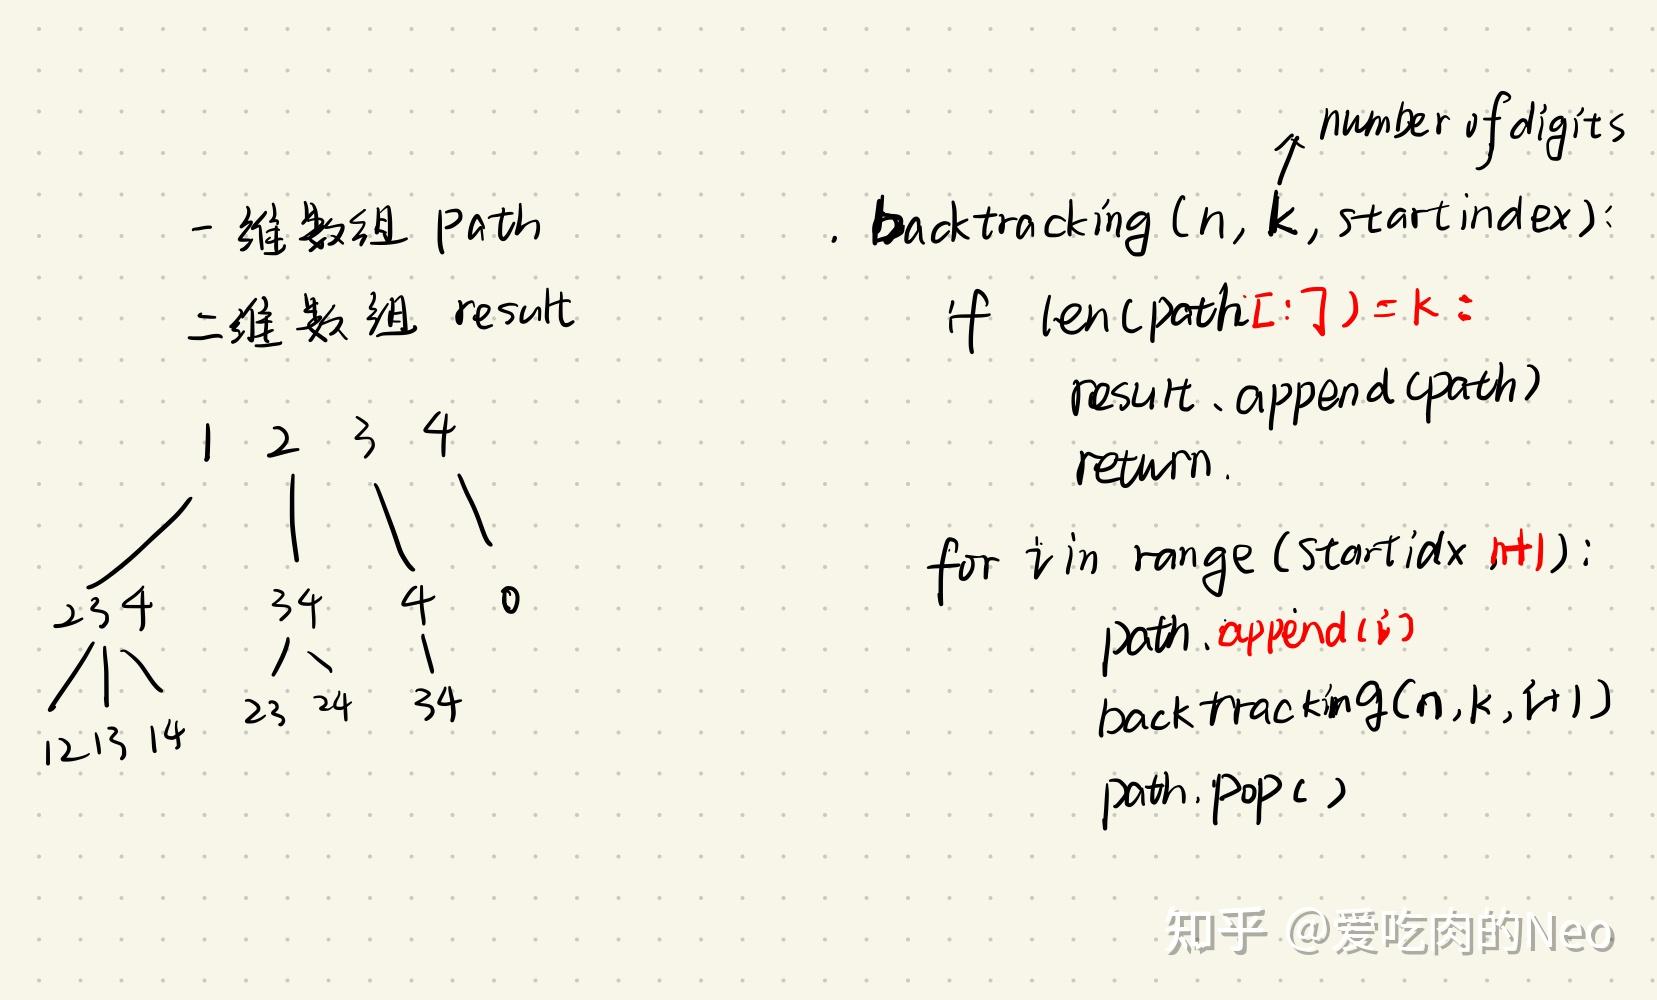 一维数组 path
二维数组 result
1 2 3 4
234 34 4 0
12 13 14 23 24 34
number of digits
backtracking (n, k, startindex):
if len(path[:]) = k:
result.append(path)
return.
for i in range (startidx, n+1):
path.append(i)
backtracking(n, k, i+1)
path.pop()
知乎 @爱吃肉的Neo